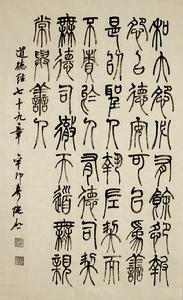 和大怨必有餘怨報
怨以德安可以為善
是以聖人執左契而
不責於人有德司契
無德司徹天道無親
常與善人
道德经七十九章 辛卯